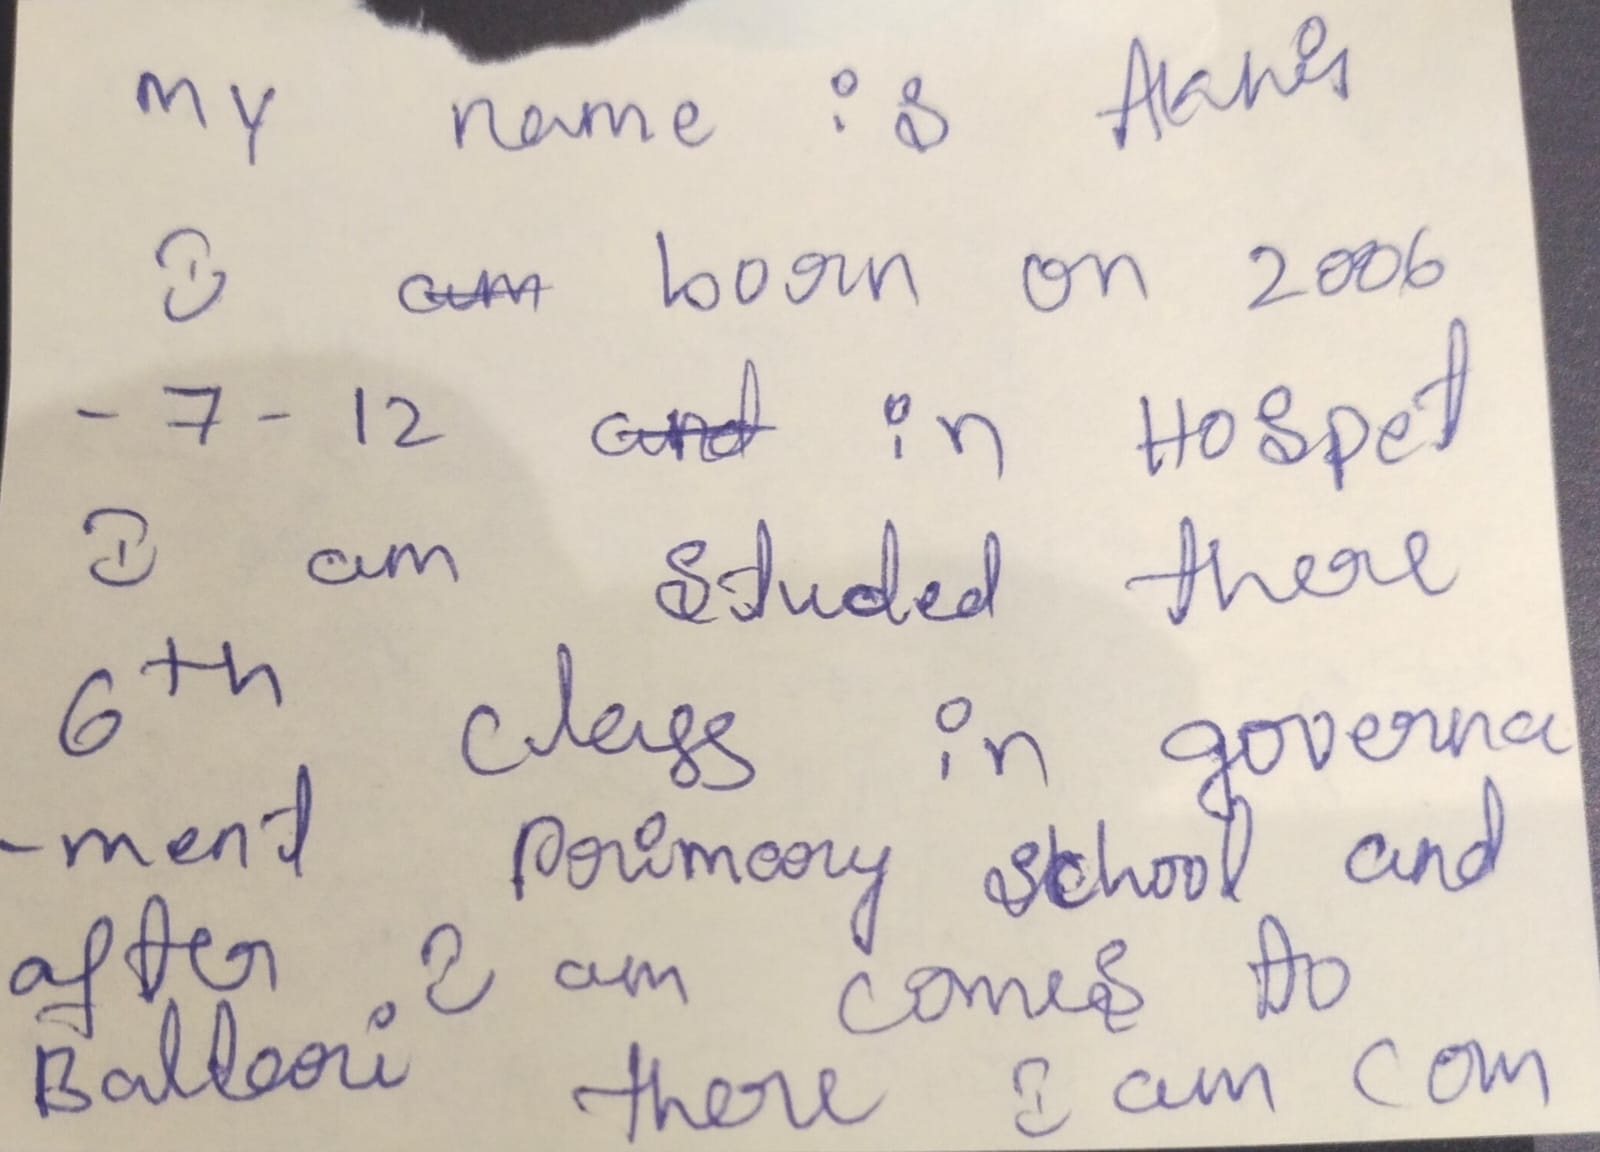 my name is Akhis
I am born on 2006
- 7 - 12 and in Hospet
I am studed there
6th class in governa
-ment primary school and
after I am comes to
Balleari there I am com